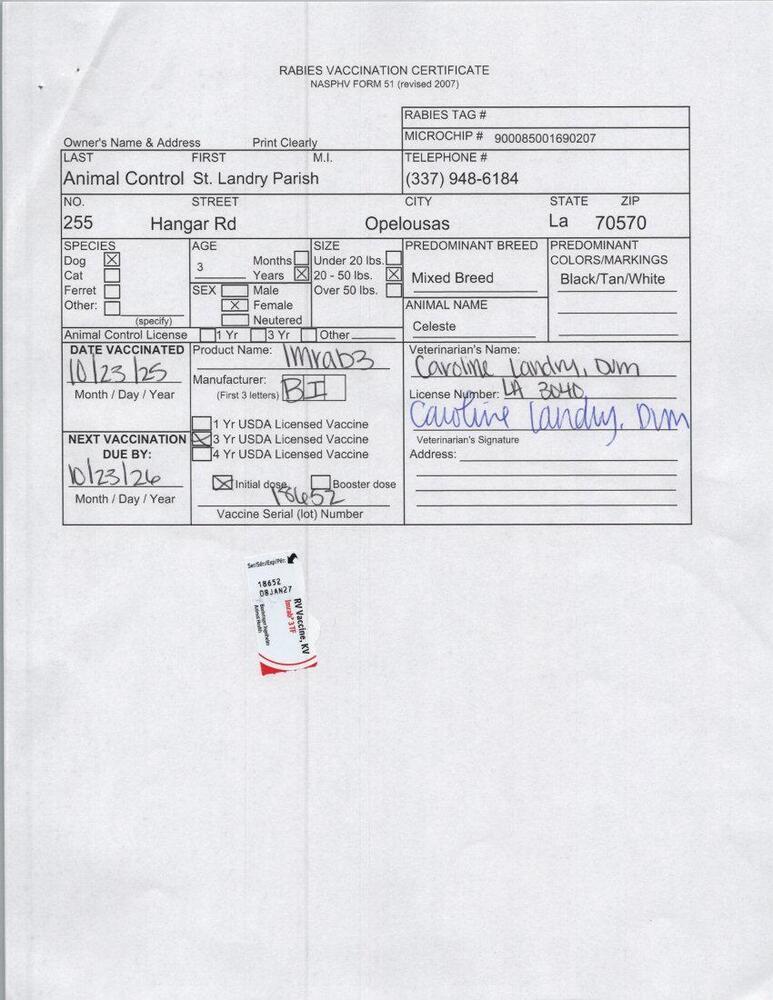 RABIES VACCINATION CERTIFICATE
NASPHV FORM 51 (revised 2007)
RABIES TAG #
Owner's Name & Address Print Clearly
MICROCHIP # 900085001690207
LAST FIRST M.I. TELEPHONE #
Animal Control St. Landry Parish (337) 948-6184
NO. STREET CITY STATE ZIP
255 Hangar Rd Opelousas La 70570
SPECIES AGE SIZE PREDOMINANT BREED PREDOMINANT
COLORS/MARKINGS
Dog Months Under 20 lbs.
Cat 3 Years 20 - 50 lbs. Mixed Breed Black/Tan/White
Ferret SEX Male Over 50 lbs.
Other: Female ANIMAL NAME
(specify) Neutered Celeste
Animal Control License 1 Yr 3 Yr Other
DATE VACCINATED Product Name: Imrab3 Veterinarian's Name:
10/23/25 Caroline Landry, DVM
Month / Day / Year Manufacturer:
(First 3 letters) BI License Number: LA 3040
Caroline Landry, DVM
1 Yr USDA Licensed Vaccine
NEXT VACCINATION 3 Yr USDA Licensed Vaccine Veterinarian's Signature
DUE BY: 4 Yr USDA Licensed Vaccine Address:
10/23/26
Initial dose Booster dose
Month / Day / Year 18652
Vaccine Serial (lot) Number
Ser/Sér/Exp/Pér.
18652
08JAN27
RV Vaccine, KV
Imrab® 3 TF
Boehringer Ingelheim
Animal Health